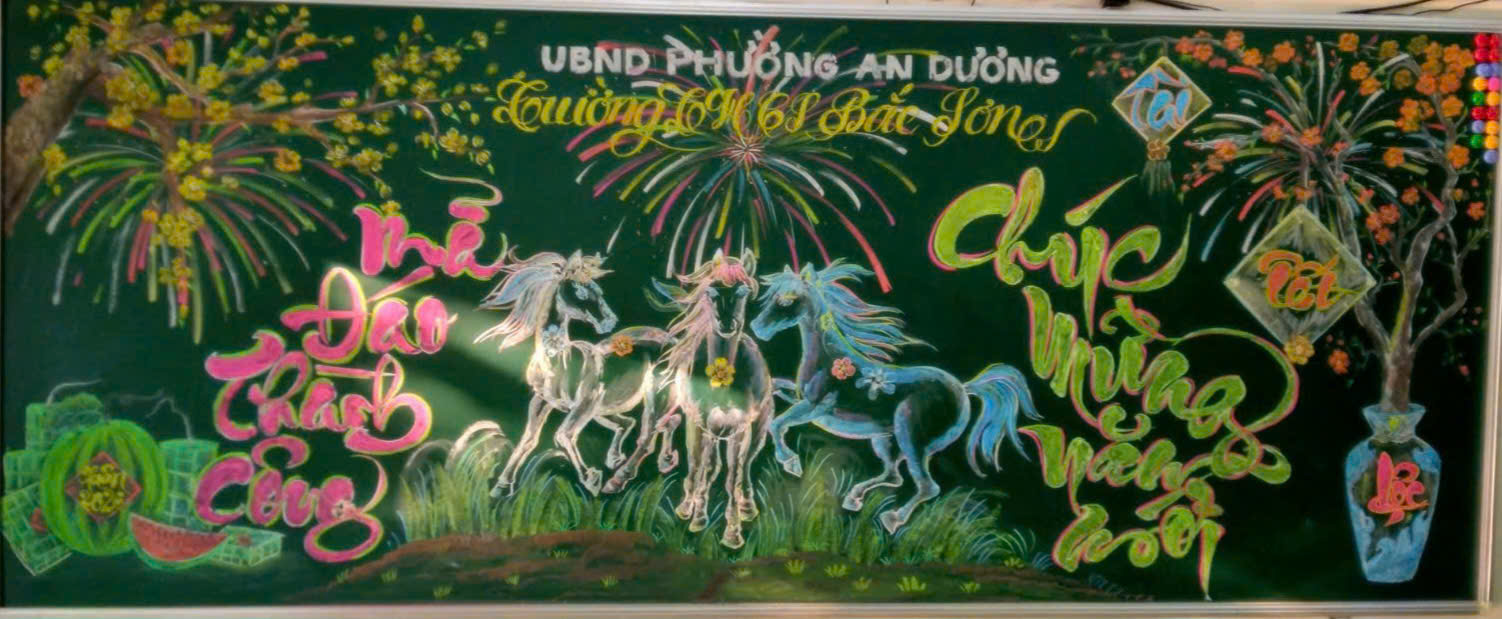 UBND PHƯỜNG AN DƯƠNG
Trường THCS Bắc Sơn
Mã
Đáo
Thành
Công
Chúc
Mừng
Năm
Mới
Tài
Tết
Lộc